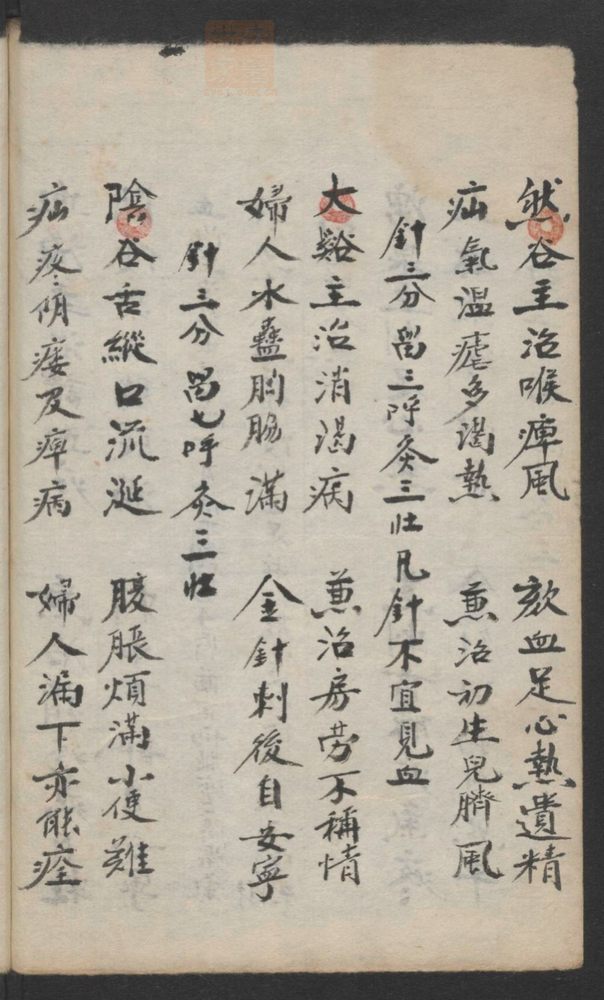 然谷主治喉痺風 欬血足心熱遺精
疝氣温瘧多渴熱 兼治初生兒臍風
針三分畄三呼灸三壯凡針不宜見血
大谿主治消渴病 兼治房劳不稱情
婦人水蠱胸脇滿 金針刺後自安寧
針三分畄七呼灸三壯
陰谷舌縱口流涎 腹脹煩滿小便難
疝疼阴痿及痺病 婦人漏下亦能痊